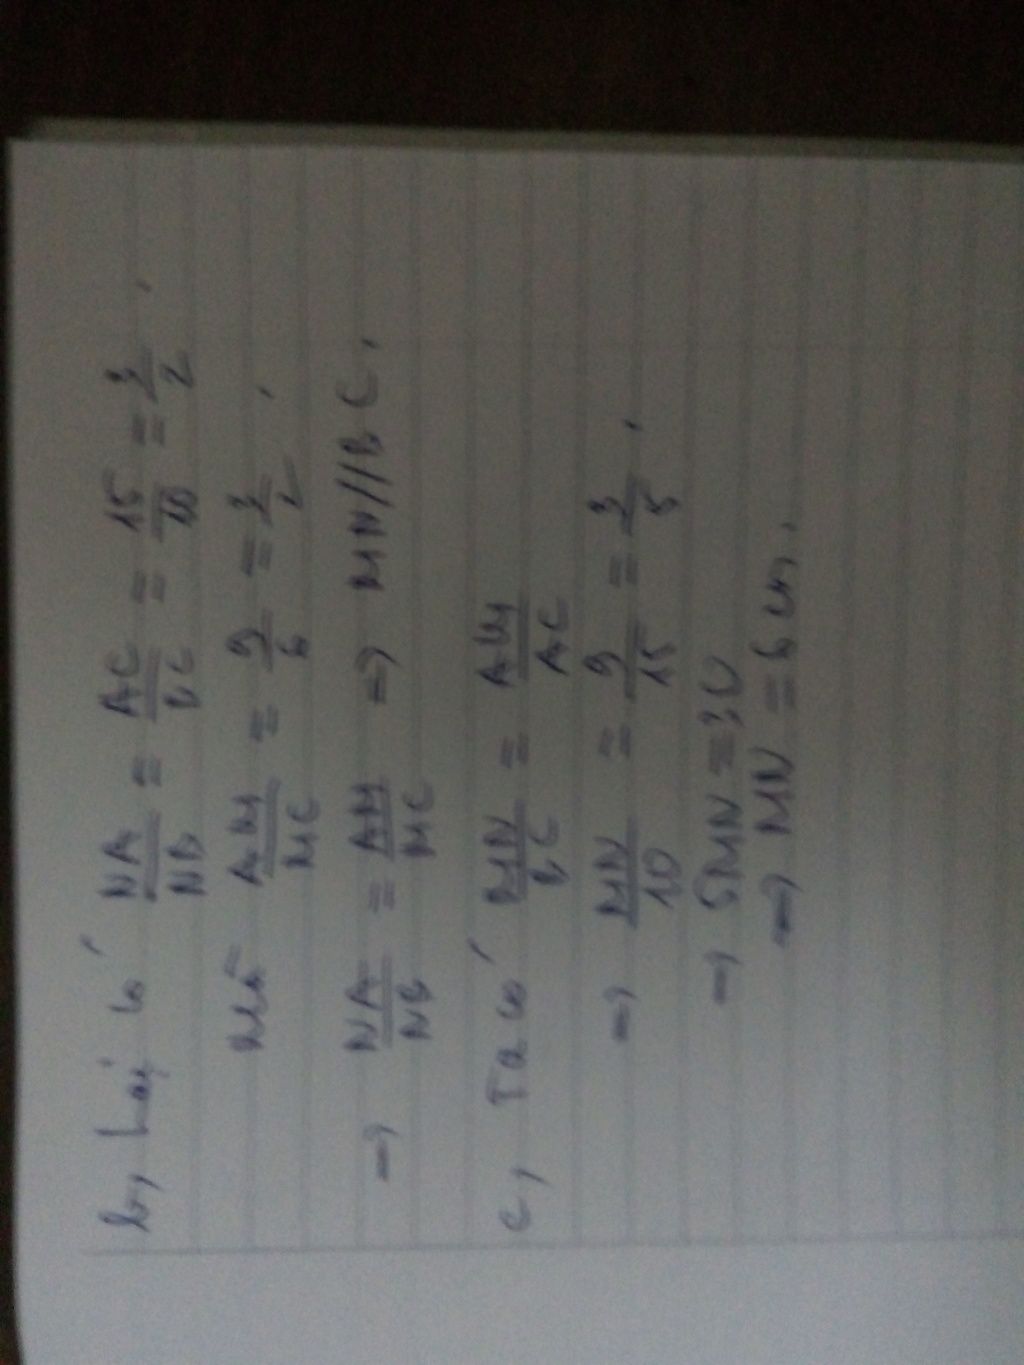 b, Lại có NA/NB = AC/BC = 15/10 = 3/2.
Mà AM/MC = 9/6 = 3/2.
→ NA/NB = AM/MC => MN//BC.
c, Ta có MN/BC = AM/AC
→ MN/10 = 9/15 = 3/5.
→ 5MN = 30
→ MN = 6 cm.